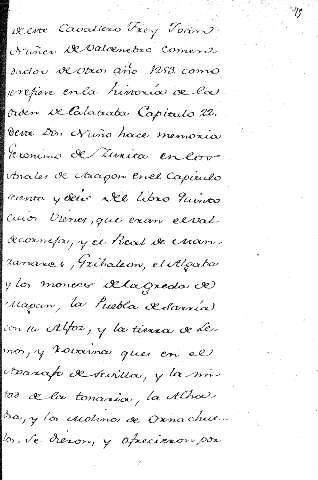 de este Cavallero Frey Juan
Nuñez de Valdenebro comen
dador de Vcles año 1253. como
se refiere en la historia de la
orden de Calatraba Capitulo 22.
deste Don Nuño hace memoria
Geronimo de Zurita en los
Anales de Aragon en el Capitulo
ciento y diez del libro quinto
cuios Vienes, que eran el val
de corneja, y el Real de Man
zanares, Gribaleon, el Algaba
y los montes de la greda de
Magan, la Puebla de Sarria
con su Alfoz, y la tierra de Le
mos, y Robaina que es en el
Axarafe de Sevilla, y la mi
tad de la tonaria, la Alha
da, y los Molinos de Ornachue
los. Se dieron, y ofrecieron por